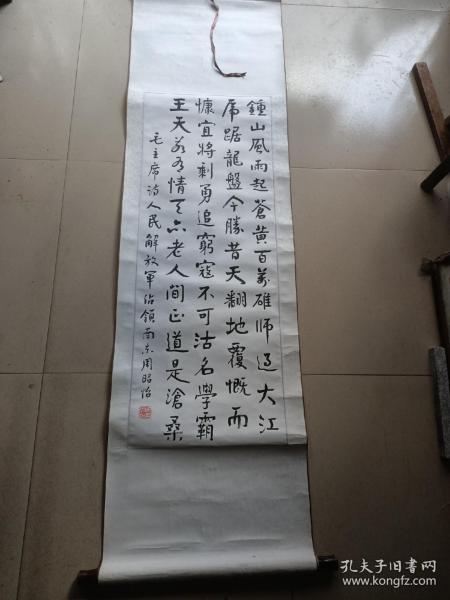 鍾山風雨起蒼黃百萬雄師过大江
虎踞龍盤今勝昔天翻地覆慨而
慷宜將剩勇追窮寇不可沽名學霸
王天若有情天亦老人間正道是滄桑
毛主席诗人民解放軍佔領南京周昭怡
孔夫子旧书网
www.kongfz.com